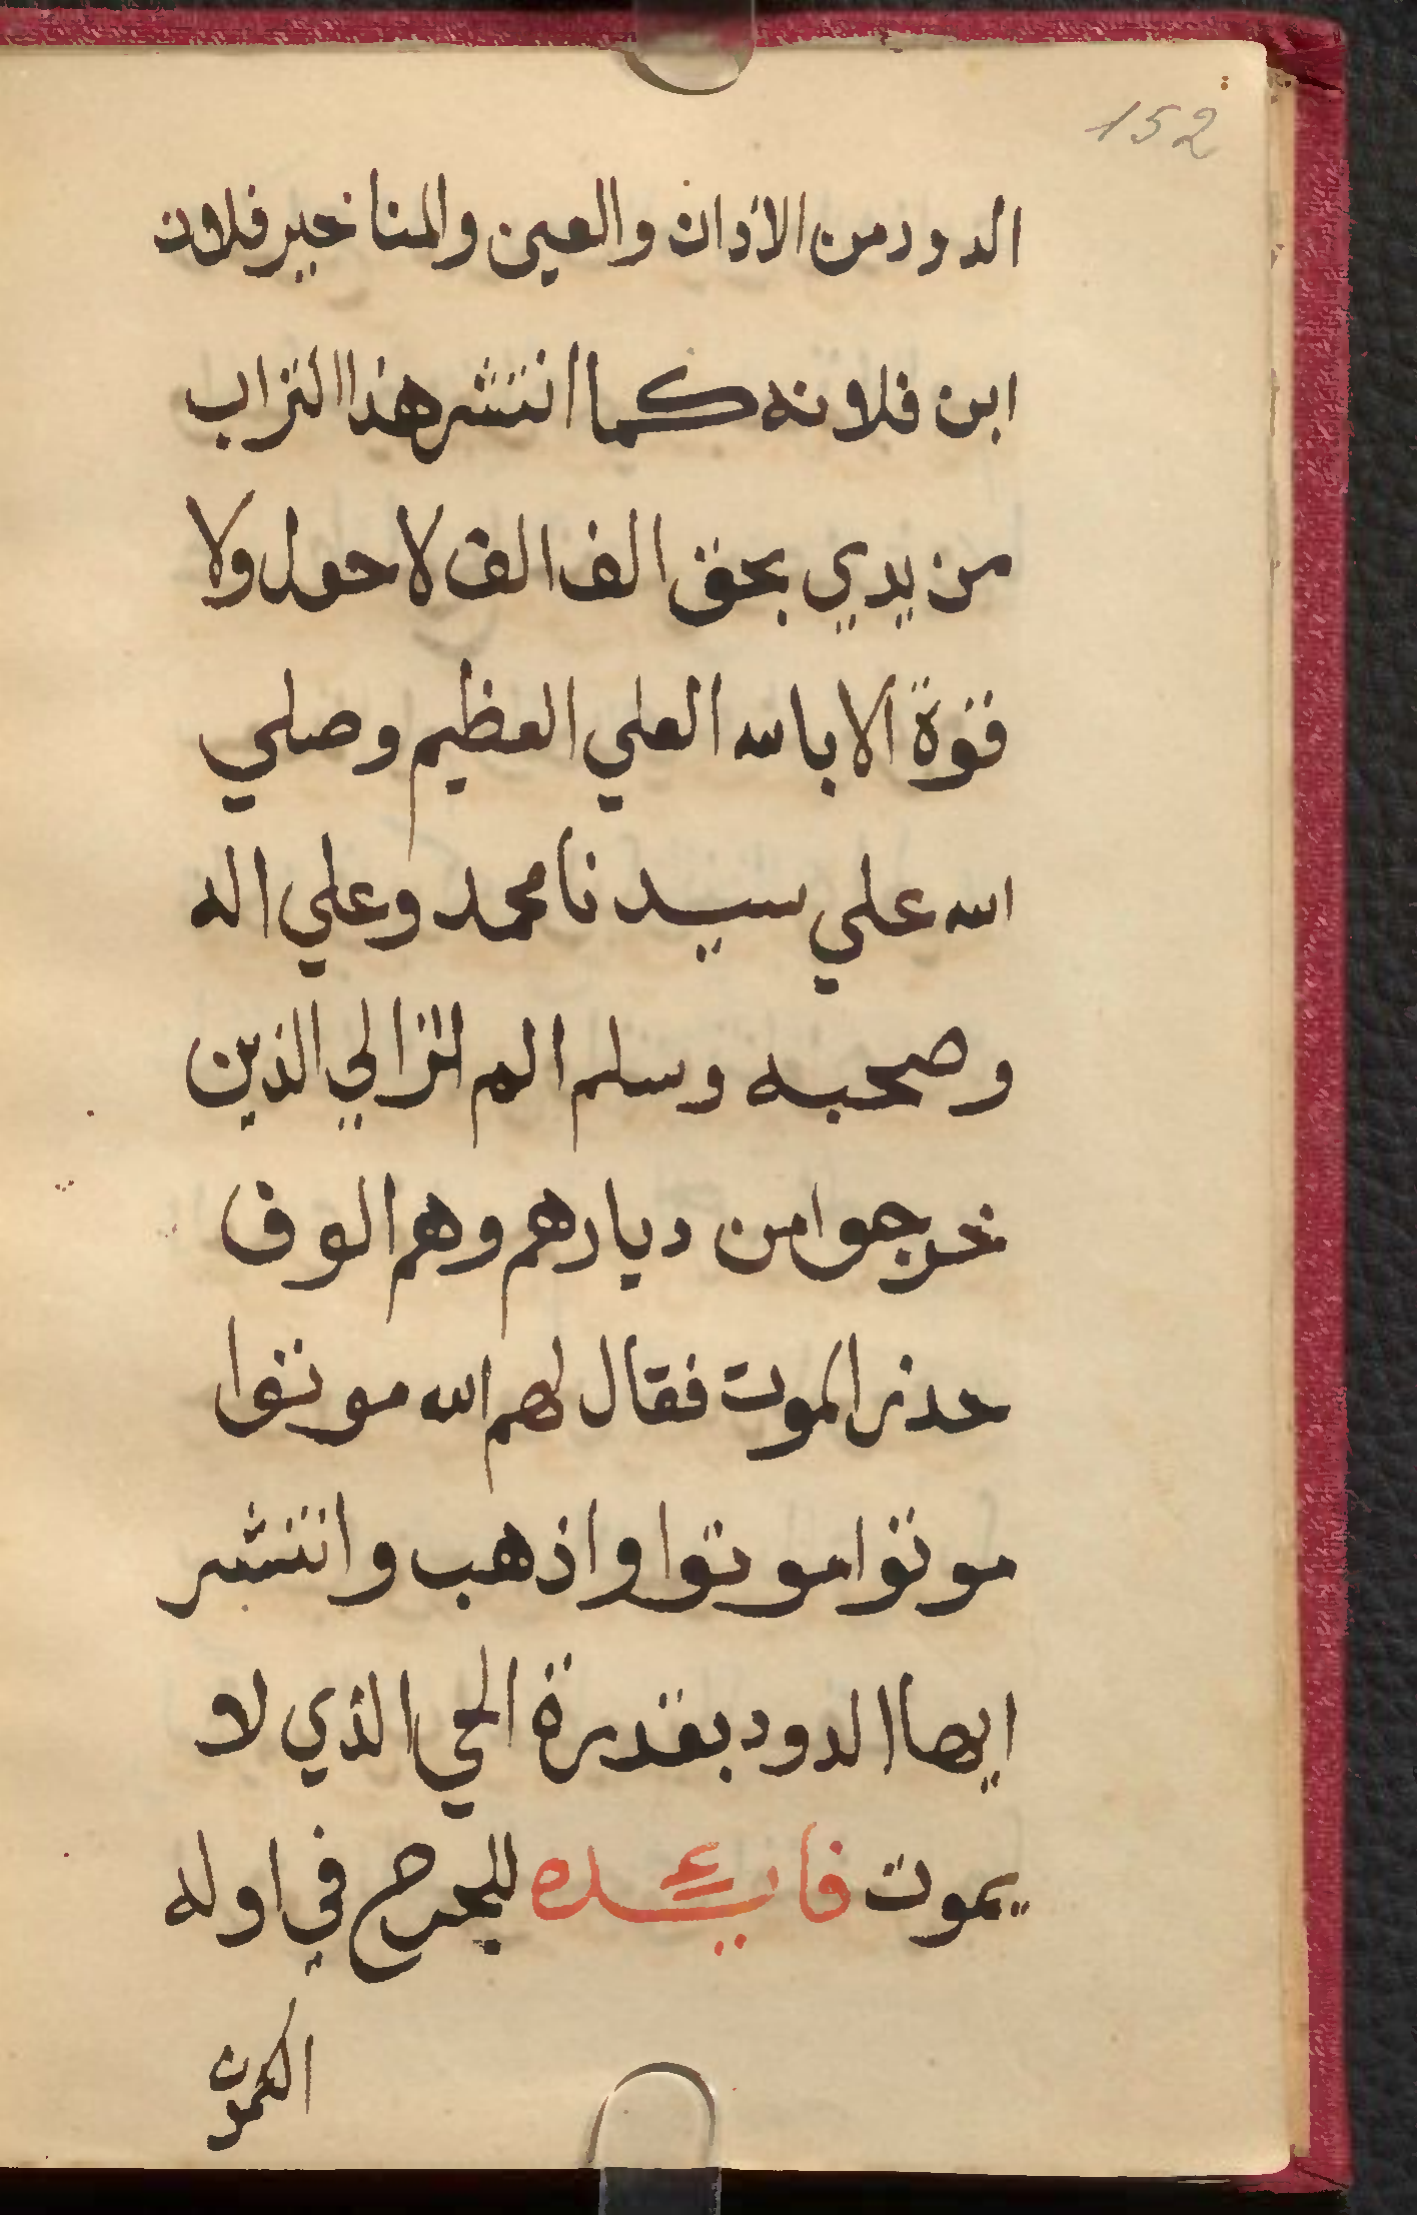 152
الدود من الاذان والعين والمناخير فلان
ابن فلانه كما انتشر هذا التراب
من يدي بحق الف الف لا حول ولا
قوة الا بالله العلي العظيم وصلي
الله علي سيدنا محمد وعلي اله
وصحبه وسلم الم تر الي الذين
خرجوا من ديارهم وهم الوف
حذر الموت فقال لهم الله موتوا
موتوا موتوا واذهب وانتشر
ايها الدود بقدرة الحي الذي لا
يموت فائده للجرح في اوله
الكمون